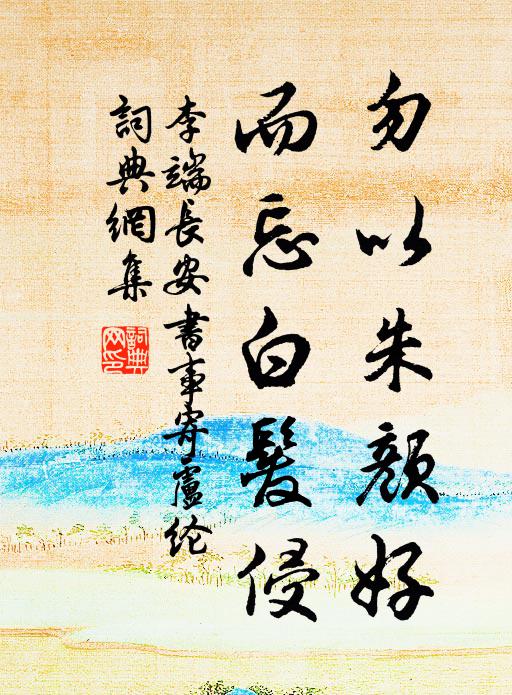 勿以朱顏好
而忘白髮侵
李端長安書事寄盧纶
詞典網集
詞典网印